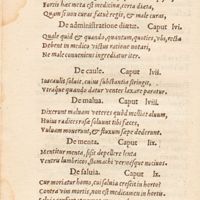 Fortis hæc meta est medicinæ, certa diæta,
Quam si non curas fatuè regis, & male curas.
De administratione diætæ. Caput lvi.
Quale quid & quando, quantum, quoties, vbi, recta
Debent in medico victus ratione notari,
Ne male conueniens ingrediatur iter.
De caule. Caput lvii.
Ius caulis soluit, cuius substantia stringit,
Vtraque quando datur venter laxare paratur.
De malua. Caput lviii.
Dixerunt maluam veteres quòd molliat aluum,
Huius radices rasæ soluunt tibi fæces,
Vuluam mouerunt, & fluxum sæpe dederunt.
De menta. Caput lix.
Mentitur menta, si sit depellere lenta
Ventris lumbricos, stomachi vermesque nociuos.
De saluia. Caput lx.
Cur moriatur homo, cui saluia crescit in horto?
Contra vim mortis, non est medicamen in hortis